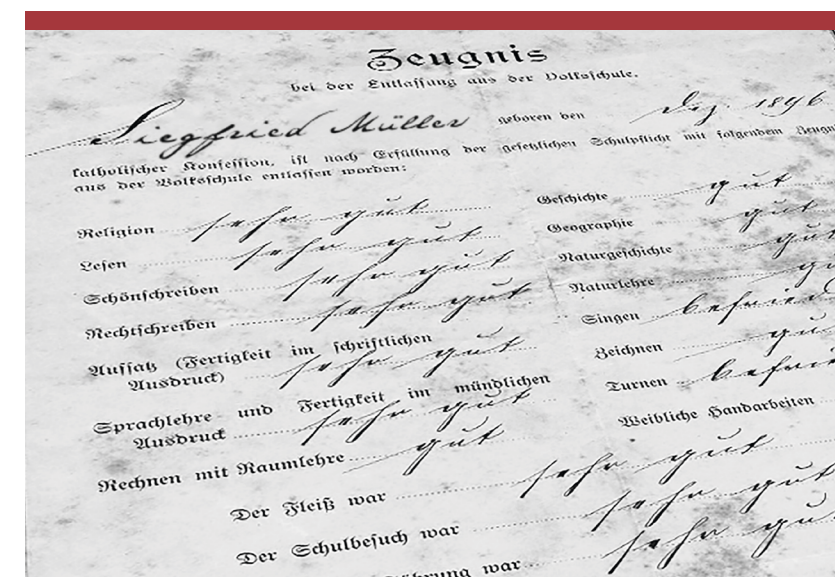 Zeugnis
bei der Entlassung aus der Volksschule.
Siegfried Müller geboren den Dez. 1896
katholischer Konfession, ist nach Erfüllung der gesetzlichen Schulpflicht mit folgendem Zeugn
aus der Volksschule entlassen worden:
Religion sehr gut
Lesen sehr gut
Schönschreiben sehr gut
Rechtschreiben sehr gut
Aufsatz (Fertigkeit im schriftlichen
Ausdruck) sehr gut
Sprachlehre und Fertigkeit im mündlichen
Ausdruck sehr gut
Rechnen mit Raumlehre gut
Geschichte gut
Geographie gut
Naturgeschichte gut
Naturlehre gu
Singen befried
Zeichnen gu
Turnen befrie
Weibliche Handarbeiten
Der Fleiß war sehr gut
Der Schulbesuch war sehr gut
ührung war sehr gu